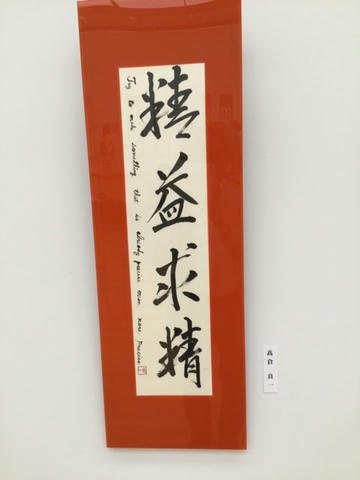 精益求精
Try to make something that is already precise even more precise
高倉 良一